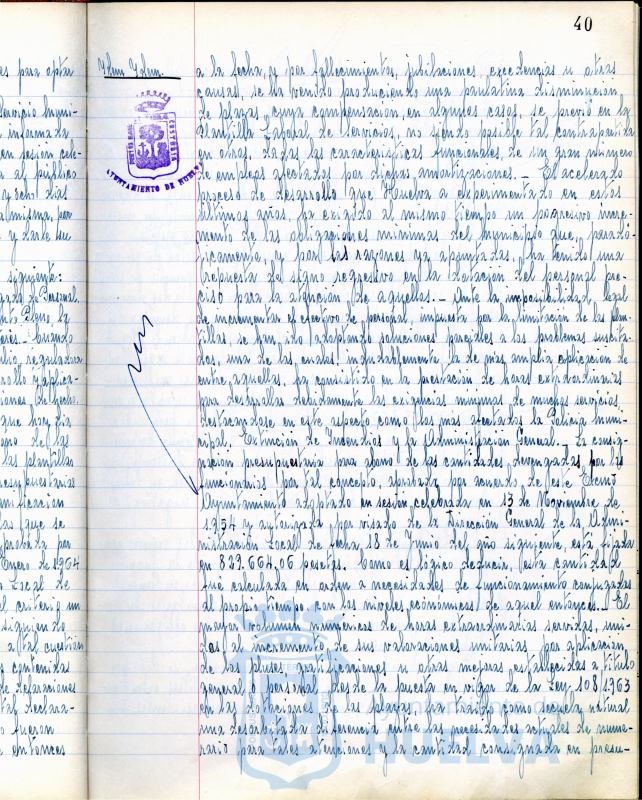 40
es para optar
Servicio Muni-
informada
en sesión cele-
al público
y sus días
almisma, por
y darle su
siguiente:
gado de Personal.
Cuando
lio, reguladora
rrollo y aplica-
ciones
que hoy dia
eno de las
las plantillas
resupuestarias
anificación
las que se
aprobada por
Enero de 1964
Local de
el criterio un
siguiendo
a tal cuestión
s contenidas
de
tal declara-
o fueron
a entonces
Idem Idem.
AYUNTAMIENTO DE HUELVA
a la fecha, y por fallecimientos, jubilaciones, excedencias u otras
causas, se ha venido produciendo una paulatina disminución
de plazas, cuya compensación, en algunos casos, se previó en la
Plantilla Laboral de Servicios, no siendo posible tal contrapartida
en otras, dadas las características funcionales, de un gran número
de empleos afectados por dichas amortizaciones.- El acelerado
proceso de desarrollo que Huelva a experimentado en estos
últimos años, ha exigido al mismo tiempo un progresivo incre-
mento de las obligaciones mínimas del Municipio que, paradó-
jicamente, y por las razones ya apuntadas, ha tenido una
respuesta de signo regresivo en la dotación del personal pre-
ciso para la atención de aquellas.- Ante la imposibilidad legal
de incrementar el efectivo de personal impuesta por la limitación de las plan-
tillas se han ido adoptando soluciones parciales a los problemas suscita-
dos, una de las cuales, indudablemente la de más amplia aplicación de
entre aquellas, ha consistido en la prestación de horas extraordinarias
para desarrollar debidamente las exigencias mínimas de muchos servicios
destacandose en este aspecto como los más afectados la Policía Muni-
cipal, Extinción de Incendios y la Administración General.- La consig-
nación presupuestaria para abono de las cantidades devengadas por los
funcionarios por tal concepto, aprobada por acuerdo de este Excmo
Ayuntamiento adoptado en sesión celebrada en 13 de Noviembre de
1.954 y autorizada por visado de la Dirección General de la Admi-
nistración Local de fecha 18 de Junio del año siguiente, está fijada
en 829.664,06 pesetas. Como es lógico deducir, esta cantidad
fué calculada en orden a necesidades de funcionamiento conjugadas
al propio tiempo con los niveles económicos de aquel entonces.- El
mayor volumen numérico de horas extraordinarias servidas, uni-
dos al incremento de sus valoraciones unitarias por aplicación
de los pluses, gratificaciones u otras mejoras establecidas a titulo
general o personal desde la puesta en vigor de la Ley 108/1963
en las dotaciones de las plazas, ha traido como secuela natural
una desorbitada diferencia entre las necesidades actuales de nume-
rario para tales atenciones y la cantidad consignada en presu-
Ayuntamiento de
HUELVA